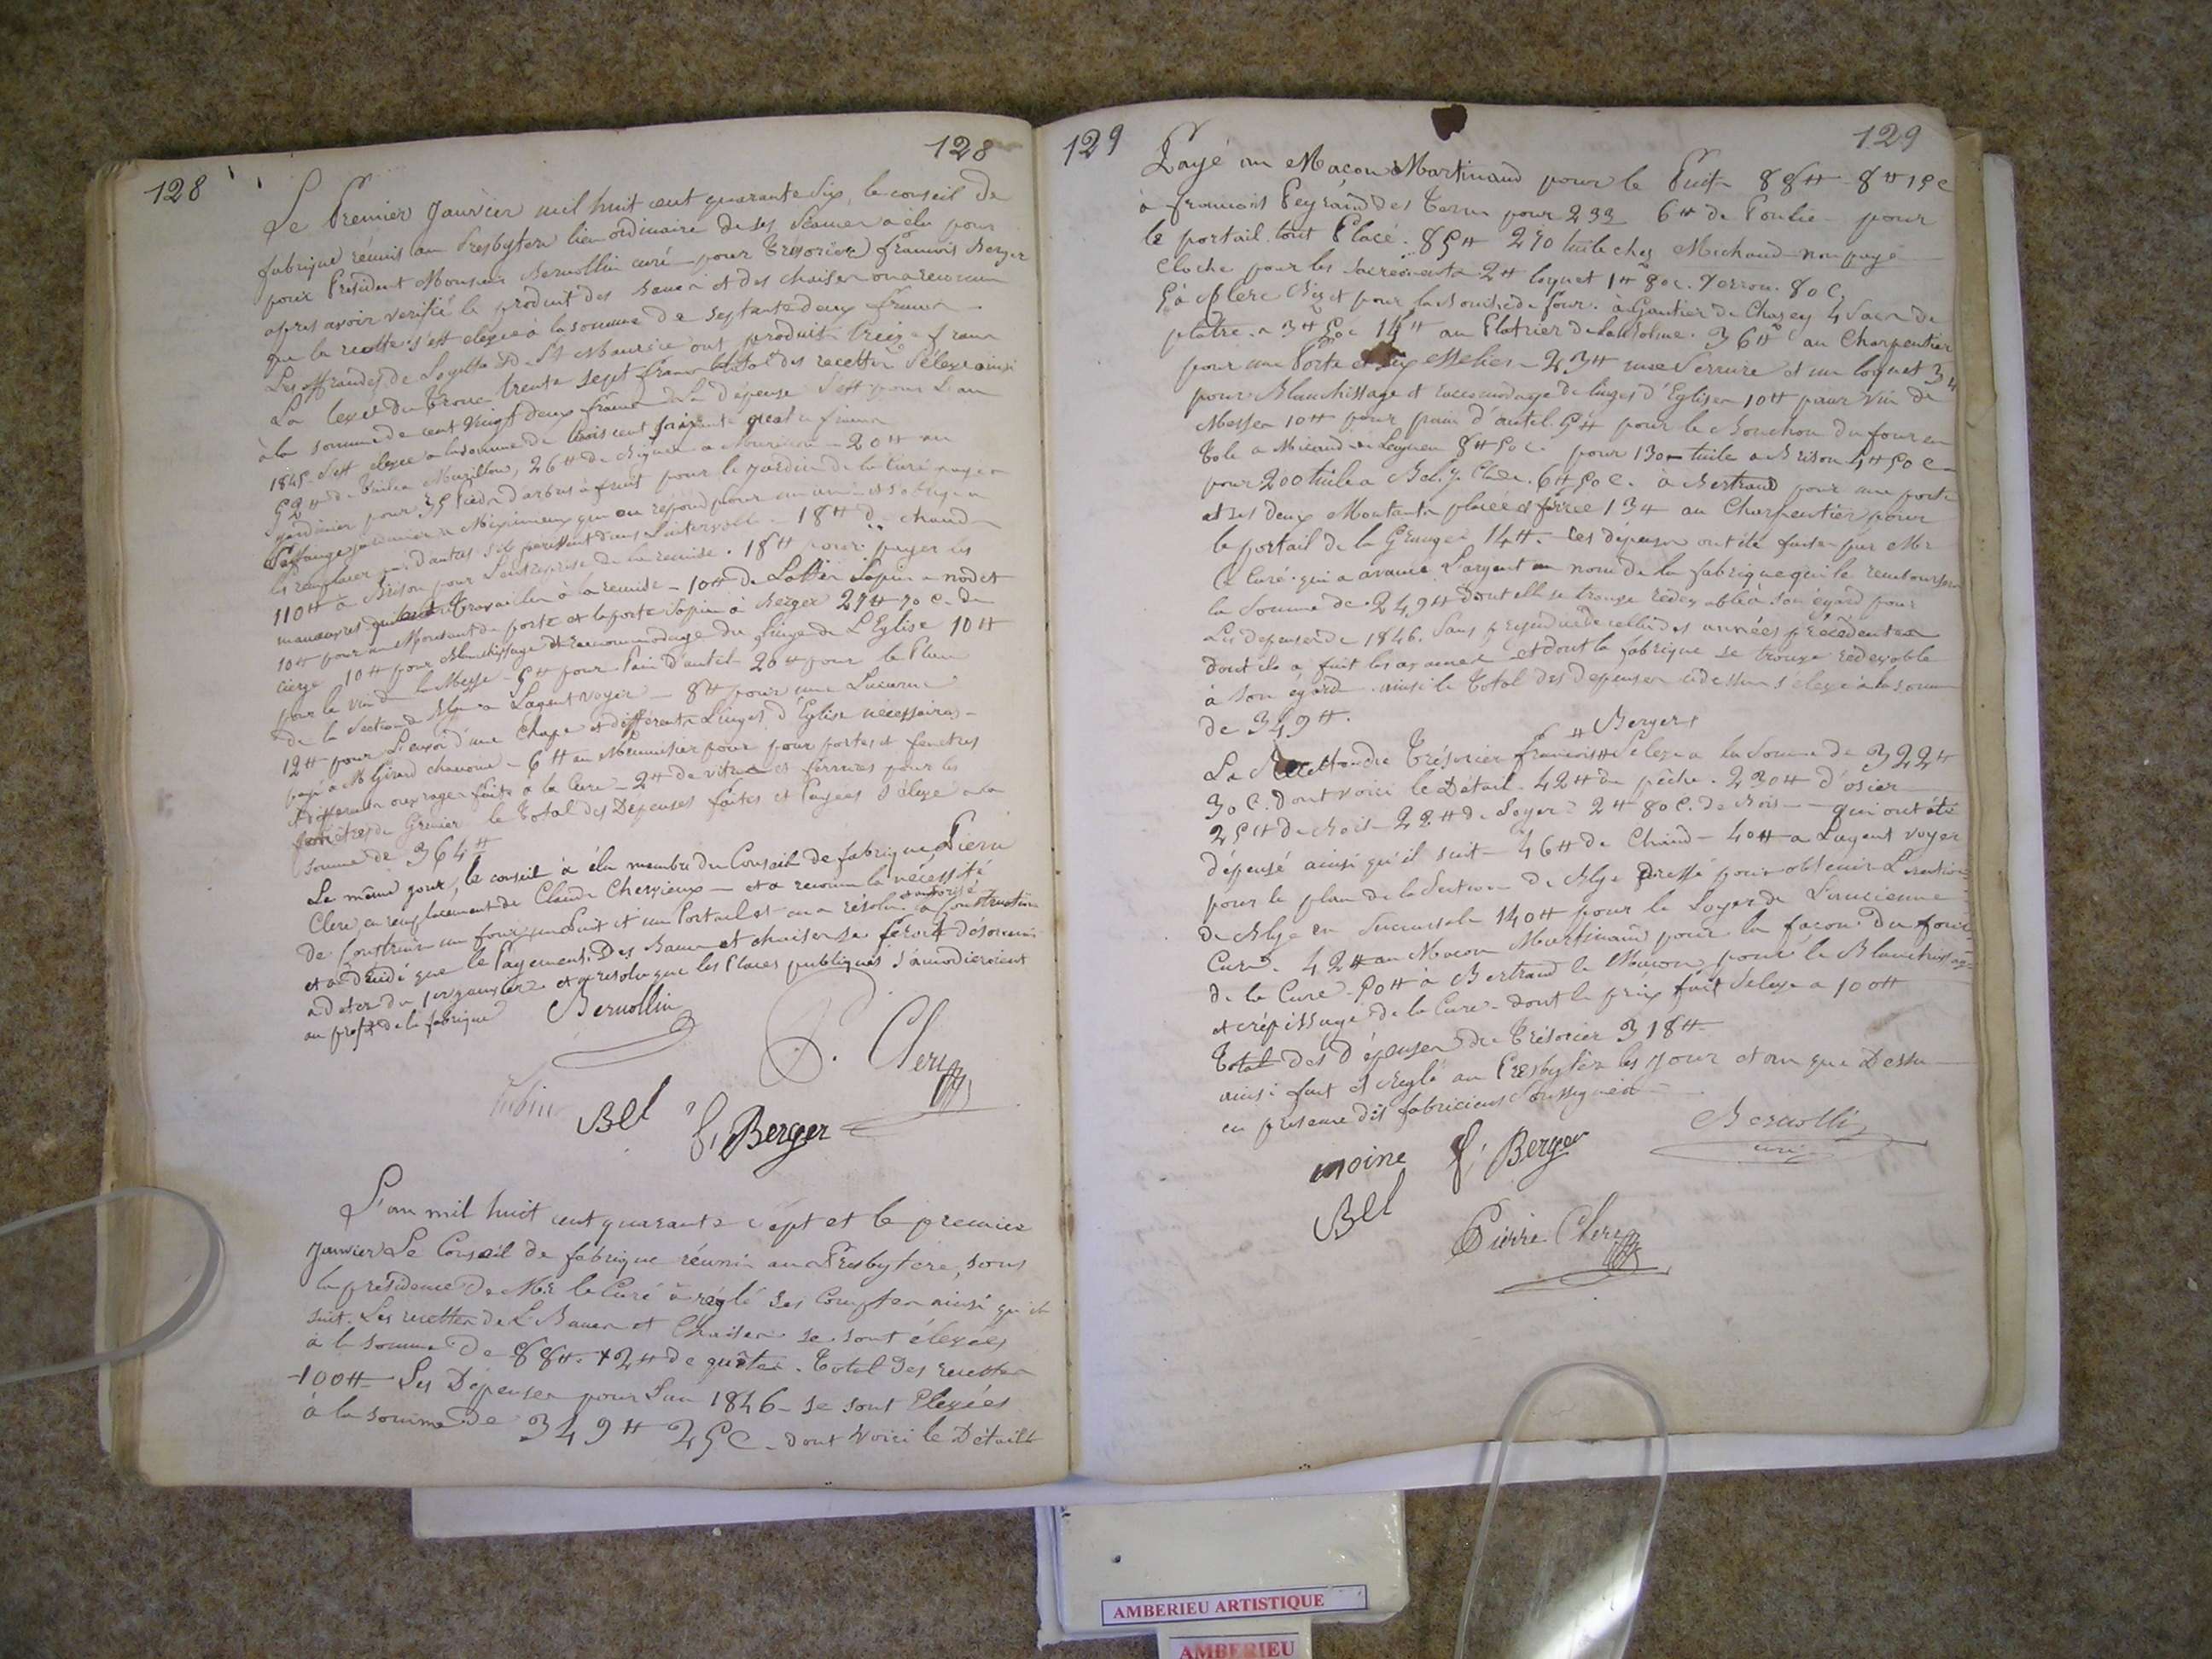 128
128
Le Premier Janvier mil huit cent quarante six, le conseil de
fabrique réunis au Presbytere lieu ordinaire de ses séances a élu pour
pour Président Monsieur Bernollin curé pour Trésorier francois Berger
apres avoir verifié le produit des Bancs et des chaises on a reconnu
que la recette s'est elevée à la somme de septante deux francs
Les offrandes de St Maurice ont produit treize francs
La levee du tronc trente sept francs total des recettes s'éleve ainsi
à la somme de cent vingt deux francs La dépense s'est pour L'an
1845 s'est elevée a la somme de trois cent soixante quatre francs
52 ₶ de tuiles 26 ₶ de 20 ₶ au
jardinier pour 35 pieds d'arbres à fruit pour le jardin de la Cure payés a
jardinier a Meximieux qui en répond pour un an et s'oblige a
les remplacer d'autres s'ils perissent dans l'intervalle - 18 ₶ de chaud
110 ₶ à Brison pour L'entreprise de la remise. 18 ₶ pour payer les
manoeuvres qui ont travaillé à la remise - 10 ₶ de Lattes Sapin
10 ₶ pour un Montant de porte et la porte Sapin à Berger 27 ₶ 70 c. de
cierge 10 ₶ pour Blanchissage et raccommodage du Linge de L'Eglise 10 ₶
pour le vin de la Messe - 5 ₶ pour Pain d'autel 20 ₶ pour le Plan
de la Section de Blye a L'agent voyer - 8 ₶ pour une Lucarne
12 ₶ pour L'envoi d'une Chape et différents Linges d'Eglise nécessaires -
payé a Mr Girard chanoine - 6 ₶ au Menuisier pour pour portes et fenetres
et differents ouvrages faits à la Cure - 2 ₶ de vitres et ferrures pour les
fenetres du Grenier le Total des Dépenses faites et Payées s'éleve a la
somme de 364 ₶
Le même jour, le conseil à élu membre du Conseil de fabrique Pierre
Clerc, en remplacement de Claude Chevrieux - et a reconnu la nécessité
de Construire un four, un Puit et un Portail et on a résolu et autorisé la Construction
et a décidé que le Payement Des Bancs et chaises se feroit désormais
a dater du 1er janvier et a résolu que les Places publiques s'amodieroient
au profit de la fabrique
Bernollin
P. Clerc
Bel
f, Berger
L'an mil huit cent quarante sept et le premier
Janvier Le Conseil de fabrique réunis au Presbytere, sous
la présidence de Mr le Curé à réglé ses Comptes ainsi qu'il
suit. Les recettes de L Bancs et Chaises se sont élevées
à la somme de 88 ₶. 12 ₶ de quêtes. Total des recettes
100 ₶ - Les Dépenses pour L'an 1846 - se sont Elevées
à la somme de 349 ₶ 25 C - dont voici le Détaill
129
129
Payé au Macon Martinand pour le Puit 88 ₶ - 8 ₶ 15 c
à francois Peyraud des Terres pour 233 6 ₶ de pour
le portail tout Placé. 85 ₶ 270 tuile chez Michaud non payé
Cloche pour les Sacrements 2 ₶ loquet 1 ₶ 80 c. Verrou. 80 C
5 à Clerc pour la Bouche de four. à Gautier de Chazey 4 Sacs de
platre - 3 ₶ 50 c 14 ₶ au Platrier 36 ₶ au Charpentier
pour une Porte et - 23 ₶ une Serrure et un loquet 3 ₶
pour Blanchissage et raccomodage de linges d'Eglises 10 ₶ pour vin de
Messes 10 ₶ pour pain d'autel 5 ₶ pour le Bouchon du four en
Tole a Micaud a Lagnieu 8 ₶ 50 c. pour 130 tuile a Brison 4 ₶ 50 c -
pour 200 tuile a Bel 6 ₶ 50 C. à Bertrand pour une porte
et les deux Montants placée et ferrée 13 ₶ au Charpentier pour
le portail de la Grange 14 ₶. Ces dépenses ont été faites par Mr
Le Curé qui a avancé L'argent au nom de la fabrique qui le remboursera
la Somme de 249 ₶ dont elle se trouve redevable à son égard pour
Les depenses de 1846. Sans prejudice de celles des années précédentes
dont il a fait les avances et dont la fabrique se trouve redevable
à son égard ainsi le Total des Depenses cidessus s'éleve à la somme
de 349 ₶.
₶ Berger
La Recette du Trésorier francois ₶ s'eleve a la Somme de 322 ₶
30 C. dont voici le Détail. 42 ₶ de pêche. 230 ₶ d'osier
25 ₶ de bois - 22 ₶ de Loyer - 2 ₶ 80 C. de Bois - qui ont été
dépensé ainsi qu'il suit - 46 ₶ de Chaud - 40 ₶ a L'agent voyer
pour le plan de la Section de Blye dressé pour obtenir L'erection
de Blye en Succursale 140 ₶ pour le Loyer de L'ancienne
Cure. 42 ₶ au Macon Martinand pour la facon du four
de la Cure - 50 ₶ à Bertrand le Macon pour le Blanchissage
et crépissage de la Cure - dont le prix fait s'eleve a 100 ₶
Total des dépenses du Trésorier 318 ₶
ainsi fait et Reglé au Presbytère les jour et an que Dessus
en présence des fabriciens Soussignés
Bernollin
curé
moine
f, Berger
Bel
Pierre Clerc
AMBERIEU ARTISTIQUE
AMBERIEU